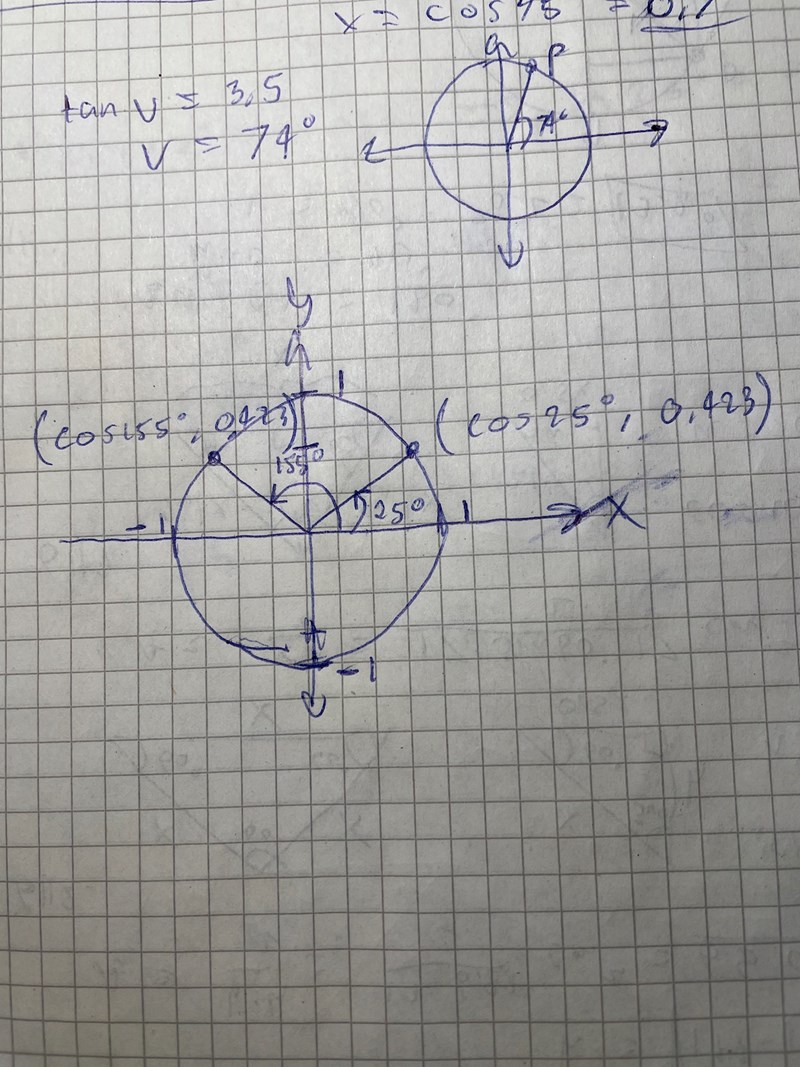 x = cos 45 = 0,7
tan v = 3,5
v = 74°
P
74°
y
1
(cos155°, 0,423)
(cos25°, 0,423)
155°
25°
-1
1
X
-1